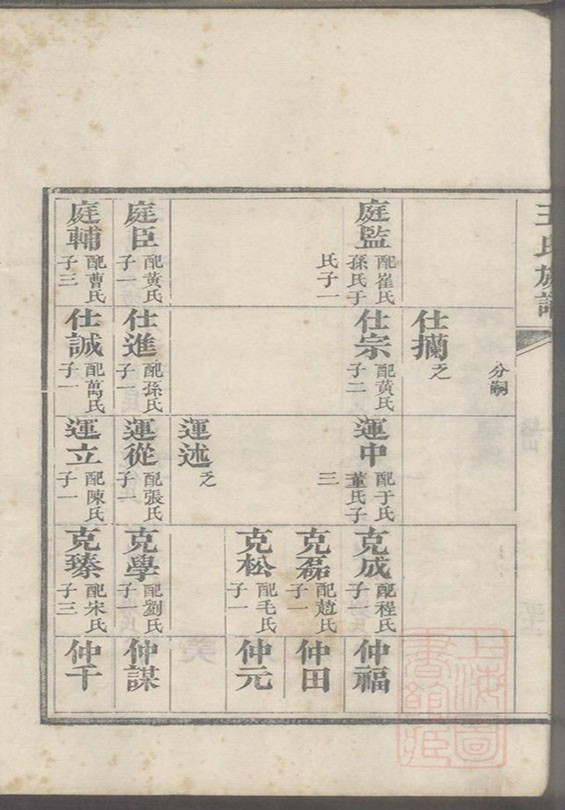 王氏族譜
分嗣
庭監
配崔氏
孫氏于
氏子一
庭臣
配黃氏
子一
庭輔
配曹氏
子三
仕攔
之
仕宗
配黃氏
子二
仕進
配孫氏
子一
仕誠
配萬氏
子一
運中
配于氏
董氏子
三
運述
之
運從
配張氏
子一
運立
配陳氏
子一
克成
配程氏
子一
克磊
配趙氏
子一
克松
配毛氏
子一
克學
配劉氏
子一
克臻
配宋氏
子三
仲福
仲田
仲元
仲謀
仲千
上海圖
書館藏